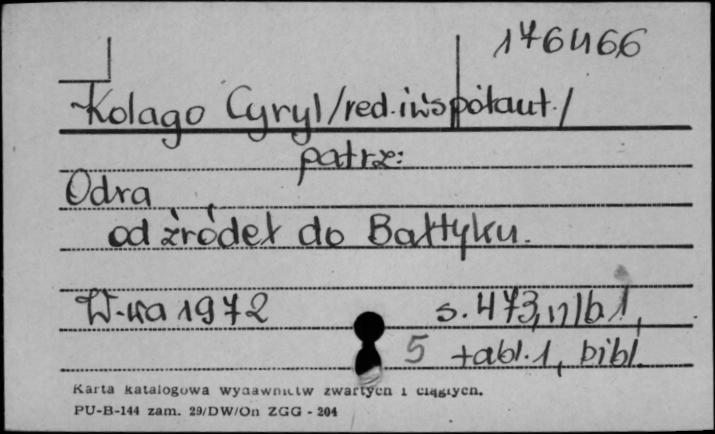 176466
Kolago Cyryl/red.i współaut./
patrz:
Odra
od źródeł do Bałtyku.
W-wa 1972 s. 473, nlb 1,
5 tabl. 1, bibl.
Karta katalogowa wydawnictw zwartych i ciągłych.
PU-B-144 zam. 29/DW/On ZGG - 204